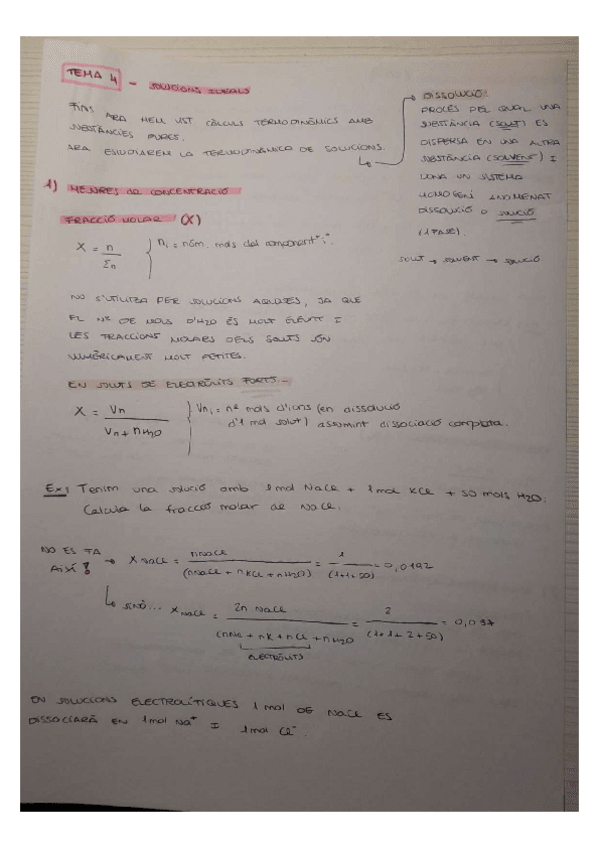 TEMA 4 - SOLUCIONS IDEALS
FINS ARA HEM VIST CÀLCULS TERMODINÀMICS AMB
SUBSTÀNCIES PURES.
ARA ESTUDIAREM LA TERMODINÀMICA DE SOLUCIONS.
DISSOLUCIÓ:
PROCÉS PEL QUAL UNA
SUBSTÀNCIA (SOLUT) ES
DISPERSA EN UNA ALTRA
SUBSTÀNCIA (SOLVENT) I
DONA UN SISTEMA
HOMOGENI ANOMENAT
DISSOLUCIÓ O SOLUCIÓ
(1 FASE).
SOLUT → SOLVENT → SOLUCIÓ
1) MESURES DE CONCENTRACIÓ
FRACCIÓ MOLAR (X)
X = n / Σn } ni = núm. mols del component "i".
NO S'UTILITZA PER SOLUCIONS AQUOSES, JA QUE
EL Nº DE MOLS D'H2O ÉS MOLT ELEVAT I
LES FRACCIONS MOLARS DELS SOLUTS SÓN
NUMÈRICAMENT MOLT PETITES.
EN SOLUTS DE ELECTRÒLITS FORTS...
X = Vn / Vn + nH2O } Vni = nº mols d'ions (en dissolució
d'1 mol solut) assumint dissociació completa.
Ex: Tenim una solució amb 1 mol NaCl + 1 mol KCl + 50 mols H2O.
Calcula la fracció molar de NaCl.
NO ES FA
AIXÍ! → XNaCl = nNaCl / (nNaCl + nKCl + nH2O) = 1 / (1+1+50) = 0,0192
↳ SINÓ... XNaCl = 2n NaCl / (nNa + nK + nCl + nH2O) = 2 / (1+1+2+50) = 0,037
ELECTRÒLITS
EN SOLUCIONS ELECTROLÍTIQUES 1 mol DE NaCl ES
DISSOCIARÀ EN 1 mol Na+ I 1 mol Cl-.